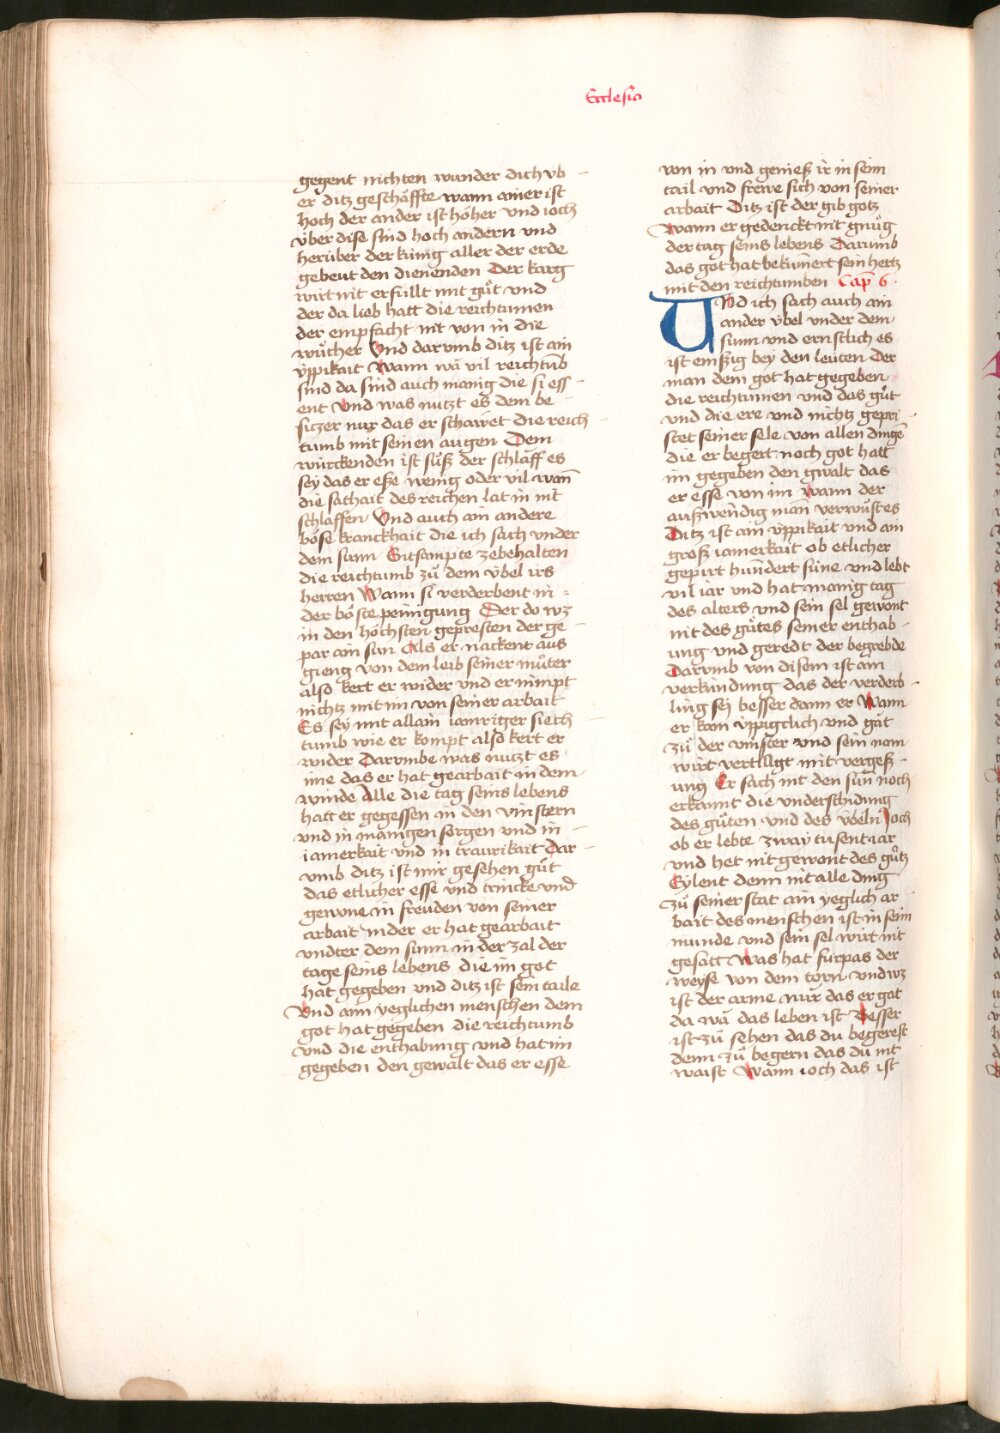 Ecclesia
gegent nichten wunder dich vb
er ditz geschäffte wann ainer ist
hoch der ander ist höher vnd ioch
v̈ber dise sind hoch andern vnd
herüber der künig aller der erde
gebeut den dienenden Der karg
wirt nit erfüllt mit gůt vnd
der da lieb hatt die reichtumen
der empfacht nit von in die
wůcher Vnd darvmb ditz ist ain
v̈ppikait Wann wā vil reichtūb
sind da sind auch manig die si ess
ent Vnd was nutzt es dem be
siczer nur das er schawet die reich
tumb mit seinen augen Dem
würckenden ist süß der schlaff es
sey das er eße wenig oder vil wañ
die sathait des reichen lat in nit
schlaffen Vnd auch ain andere
böse kranckhait die ich sach vnder
dem sunn Gitsampte zebehalten
die reichtumb zů dem v̈bel irs
herren Wann si verderbent in
der böste peinigung Der do wz
in den höchsten gepresten der ge
par ain sun Als er nackent aus
gieng von dem leib seiner můter
also kert er wider vnd er nimpt
nichtz mit im von seiner arbait
Es sey mit allain iamriger siech
tumb wie er kompt also kert er
wider Darvmbe was nutzt es
ime das er hat gearbait in dem
winde Alle die tag seins lebens
hatt er gegessen in den vinstern
vnd in mänigen sorgen vnd in
iamerkait vnd in traurikait Dar
vmb ditz ist mir gesehen gůt
das etlicher esse vnd trincke vnd
gewone in freuden von seiner
arbait in der er hat gearbait
vndter dem sunn in der zal der
tage seins lebens die im got
hat gegeben vnd ditz ist sein taile
Vnd aim yeglichen menschen dem
got hat gegeben die reichtumb
vnd die enthabung vnd hat im
gegeben den gewalt das er esse
von in vnd genieß ir in sein
tail vnd frewe sich von seiner
arbait Ditz ist der gib gotz
Wann er gedenckt nit gnůg
der tag seins lebens Darumb
das got hat bekümert sein hertz
mit den reichtumben Cap̄ 6
VNd ich sach auch ain
ander v̈bel vnder dem
sunn vnd ernstlich es
ist emßig bey den leüten Der
man dem got hat gegeben
die reichtumen vnd das gůt
vnd die ere vnd nichtz gepri
stet seiner sele von allen dingē
die er begert noch got hatt
im gegeben den gwalt das
er esse von im Wann der
außwendig man verwůst es
Ditz ist ain v̈ppikait vnd ain
groß iamerkait ob etlicher
gepirt hundert süne vnd lebt
vil iar vnd hat manig tag
des alters vnd sein sel gewont
nit des gůtes seiner enthab
ung vnd geredt der begrebde
Darvmb von disem ist ain
verkündung das der verderb
ling sey besser dann er Wann
er kom v̈ppigclich vnd gät
zů der vinster vnd sein nam
wirt vertilligt mit vergeß
ung Er sach nit den sun noch
erkannt die vnderschidung
des gůten vnd des v̈beln Joch
ob er lebte zway tusent iar
vnd het nit gewont des gůtz
Eylent denn nit alle ding
zů seiner stat ain yeglich ar
bait des menschen ist in sein
munde vnd sein sel wirt nit
gesatt Was hat fürpas der
weyse von dem torn vnd wz
ist der arme nur das er gat
da wā das leben ist Besser
ist zů sehen das du begerest
denn zů begern das du nit
waist Wann ioch das ist